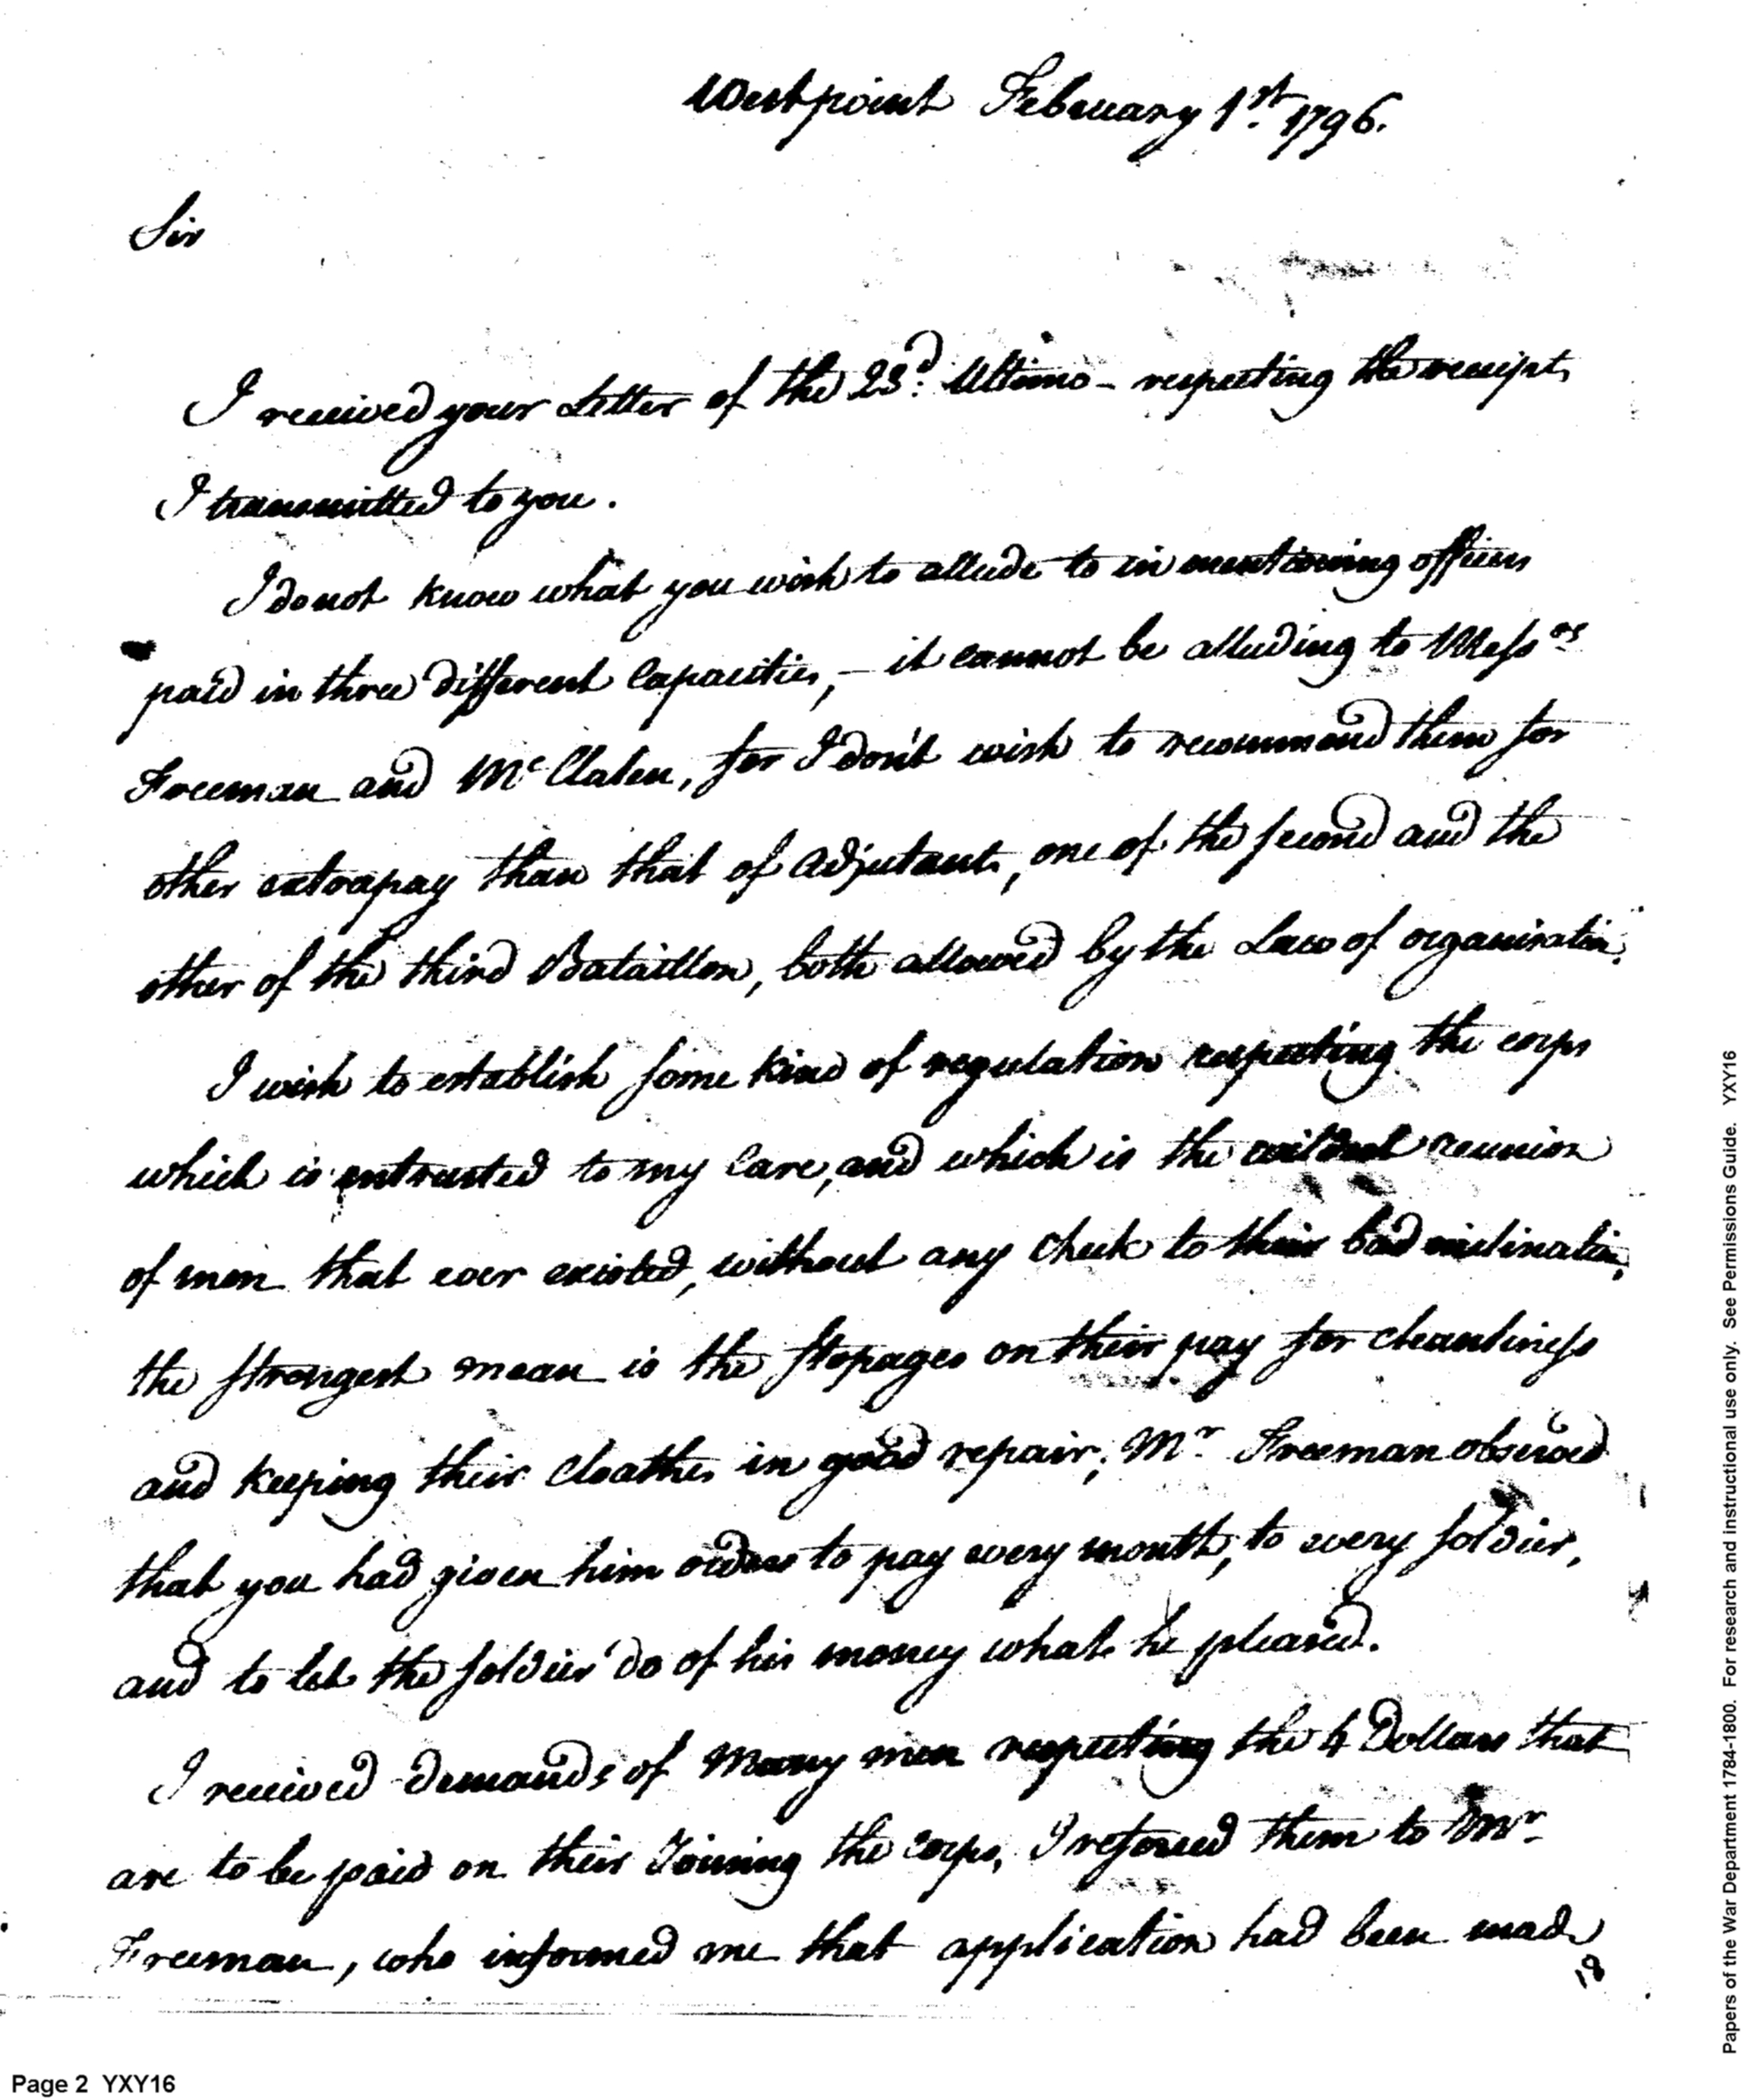 Westpoint February 1st. 1796.
Sir
I received your Letter of the 23d. Ultimo - respecting the receipts
I transmitted to you.
I do not know what you wish to allude to in mentioning officers
paid in three different Capacities, - it cannot be alluding to Messrs
Freeman and McClalen, for I don't wish to recommend them for
other extrapay than that of adjutants, one of the second and the
other of the third Bataillon, both allowed by the Law of organisation.
I wish to establish some kind of regulation respecting the corps
which is entrusted to my Care, and which is the reunion
of men that ever existed, without any check to their bad inclination,
the strongest mean is the stopages on their pay for cleanliness
and keeping their cloathes in good repair; Mr Freeman observed
that you had given him orders to pay every month, to every soldier,
and to let the soldier do of his money what he pleased.
I received demands of Many men respecting the 4 Dollars that
are to be paid on their Joining the corps, I refered them to Mr.
Freeman, who informed me that application had been made
18
Page 2 YXY16
Papers of the War Department 1784-1800. For research and instructional use only. See Permissions Guide. YXY16